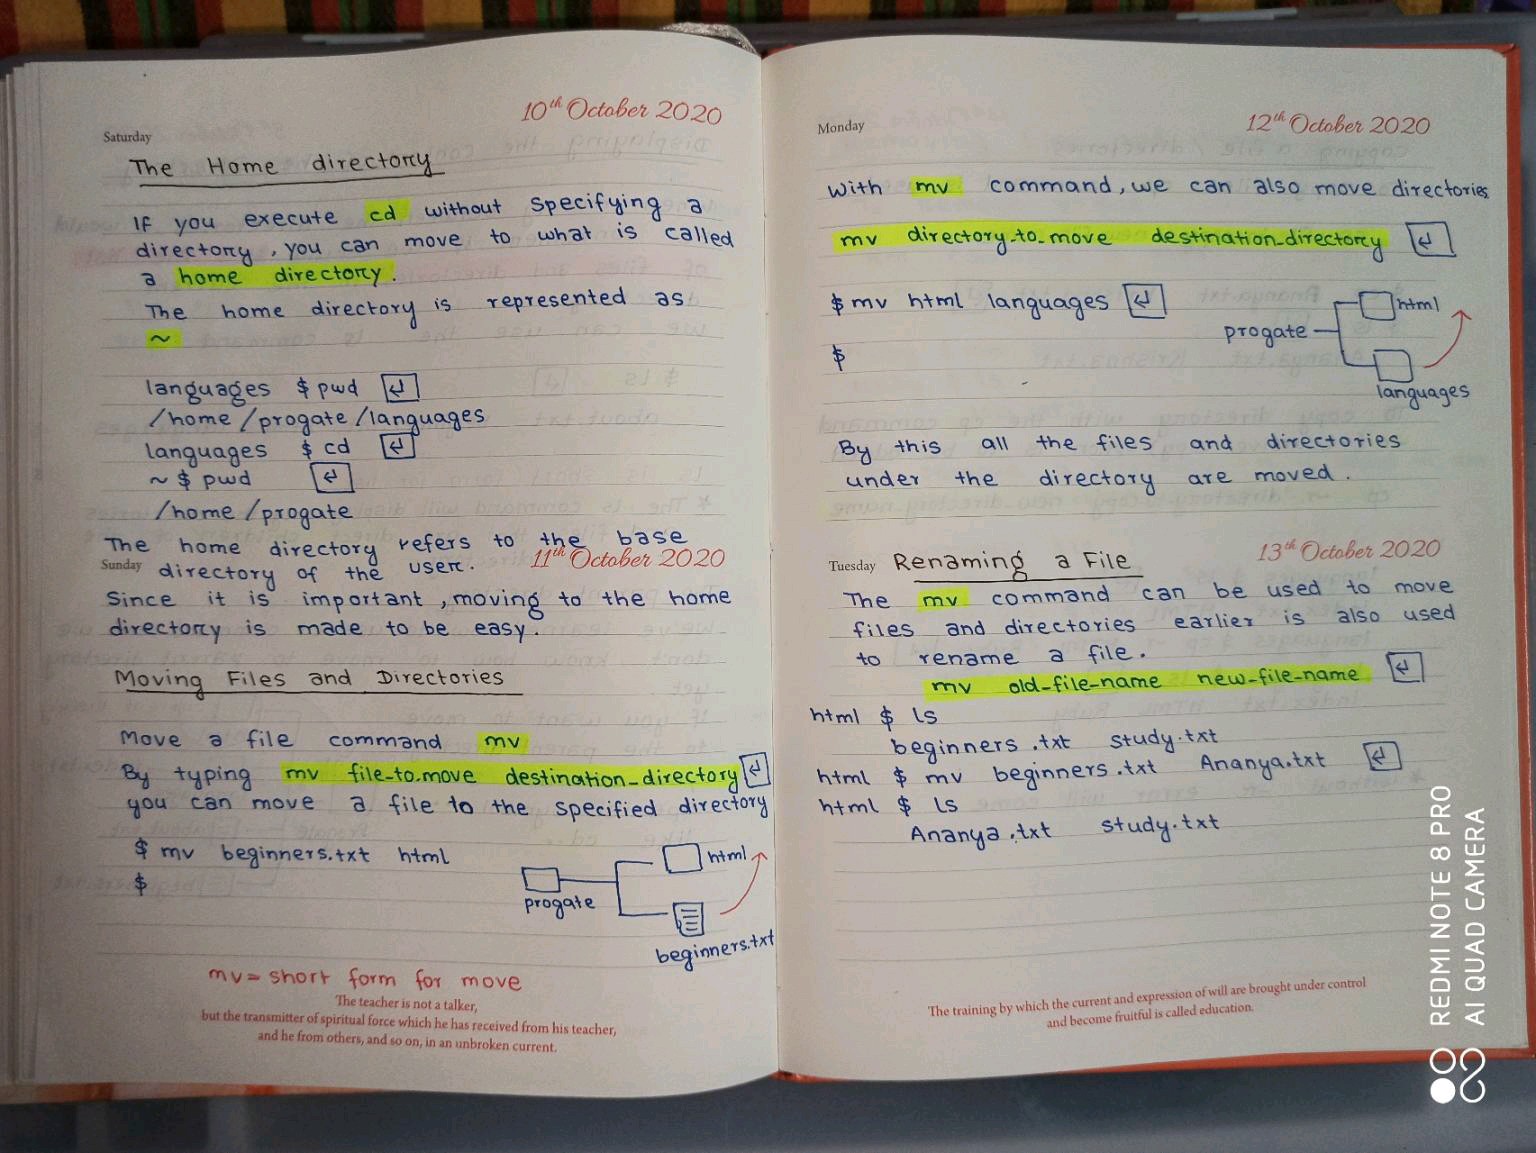 Saturday
10th October 2020
The Home directory
If you execute cd without specifying a
directory, you can move to what is called
a home directory.
The home directory is represented as
~
languages $ pwd ↵
/home/progate/languages
languages $ cd ↵
~ $ pwd ↵
/home/progate
The home directory refers to the base
Sunday
11th October 2020
directory of the user.
Since it is important, moving to the home
directory is made to be easy.
Moving Files and Directories
Move a file command mv
By typing mv file_to_move destination_directory ↵
you can move a file to the specified directory
$ mv beginners.txt html
$
progate
html
beginners.txt
mv = short form for move
The teacher is not a talker,
but the transmitter of spiritual force which he has received from his teacher,
and he from others, and so on, in an unbroken current.
Monday
12th October 2020
With mv command, we can also move directories
mv directory_to_move destination_directory ↵
$ mv html languages ↵
$
progate
html
languages
By this all the files and directories
under the directory are moved.
Tuesday
13th October 2020
Renaming a File
The mv command can be used to move
files and directories earlier is also used
to rename a file.
mv old_file_name new_file_name ↵
html $ ls
beginners.txt study.txt
html $ mv beginners.txt Ananya.txt ↵
html $ ls
Ananya.txt study.txt
The training by which the current and expression of will are brought under control
and become fruitful is called education.
REDMI NOTE 8 PRO
AI QUAD CAMERA